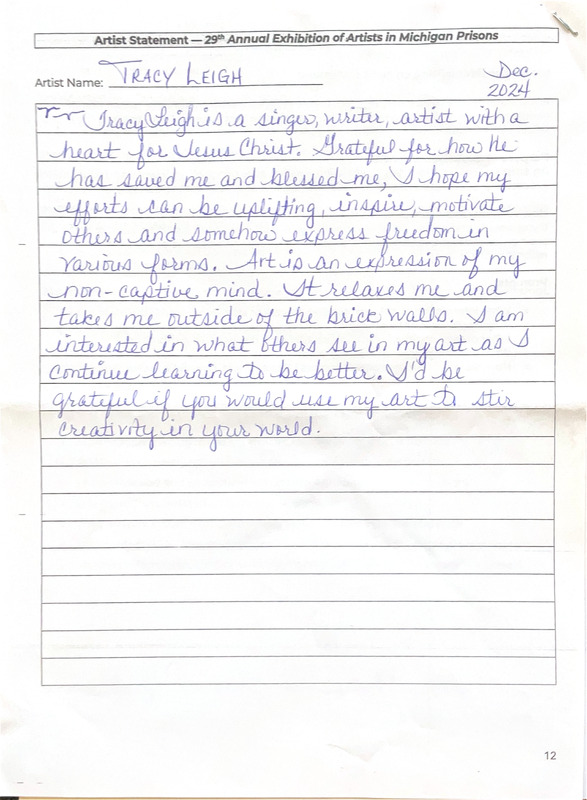 Artist Statement — 29th Annual Exhibition of Artists in Michigan Prisons
Artist Name: TRACY LEIGH
Dec.
2024
Tracy Leigh is a singer, writer, artist with a
heart for Jesus Christ. Grateful for how He
has saved me and blessed me, I hope my
efforts can be uplifting, inspire, motivate
others and somehow express freedom in
various forms. Art is an expression of my
non-captive mind. It relaxes me and
takes me outside of the brick walls. I am
interested in what others see in my art as I
continue learning to be better. I'd be
grateful if you would use my art to stir
creativity in your world.
12